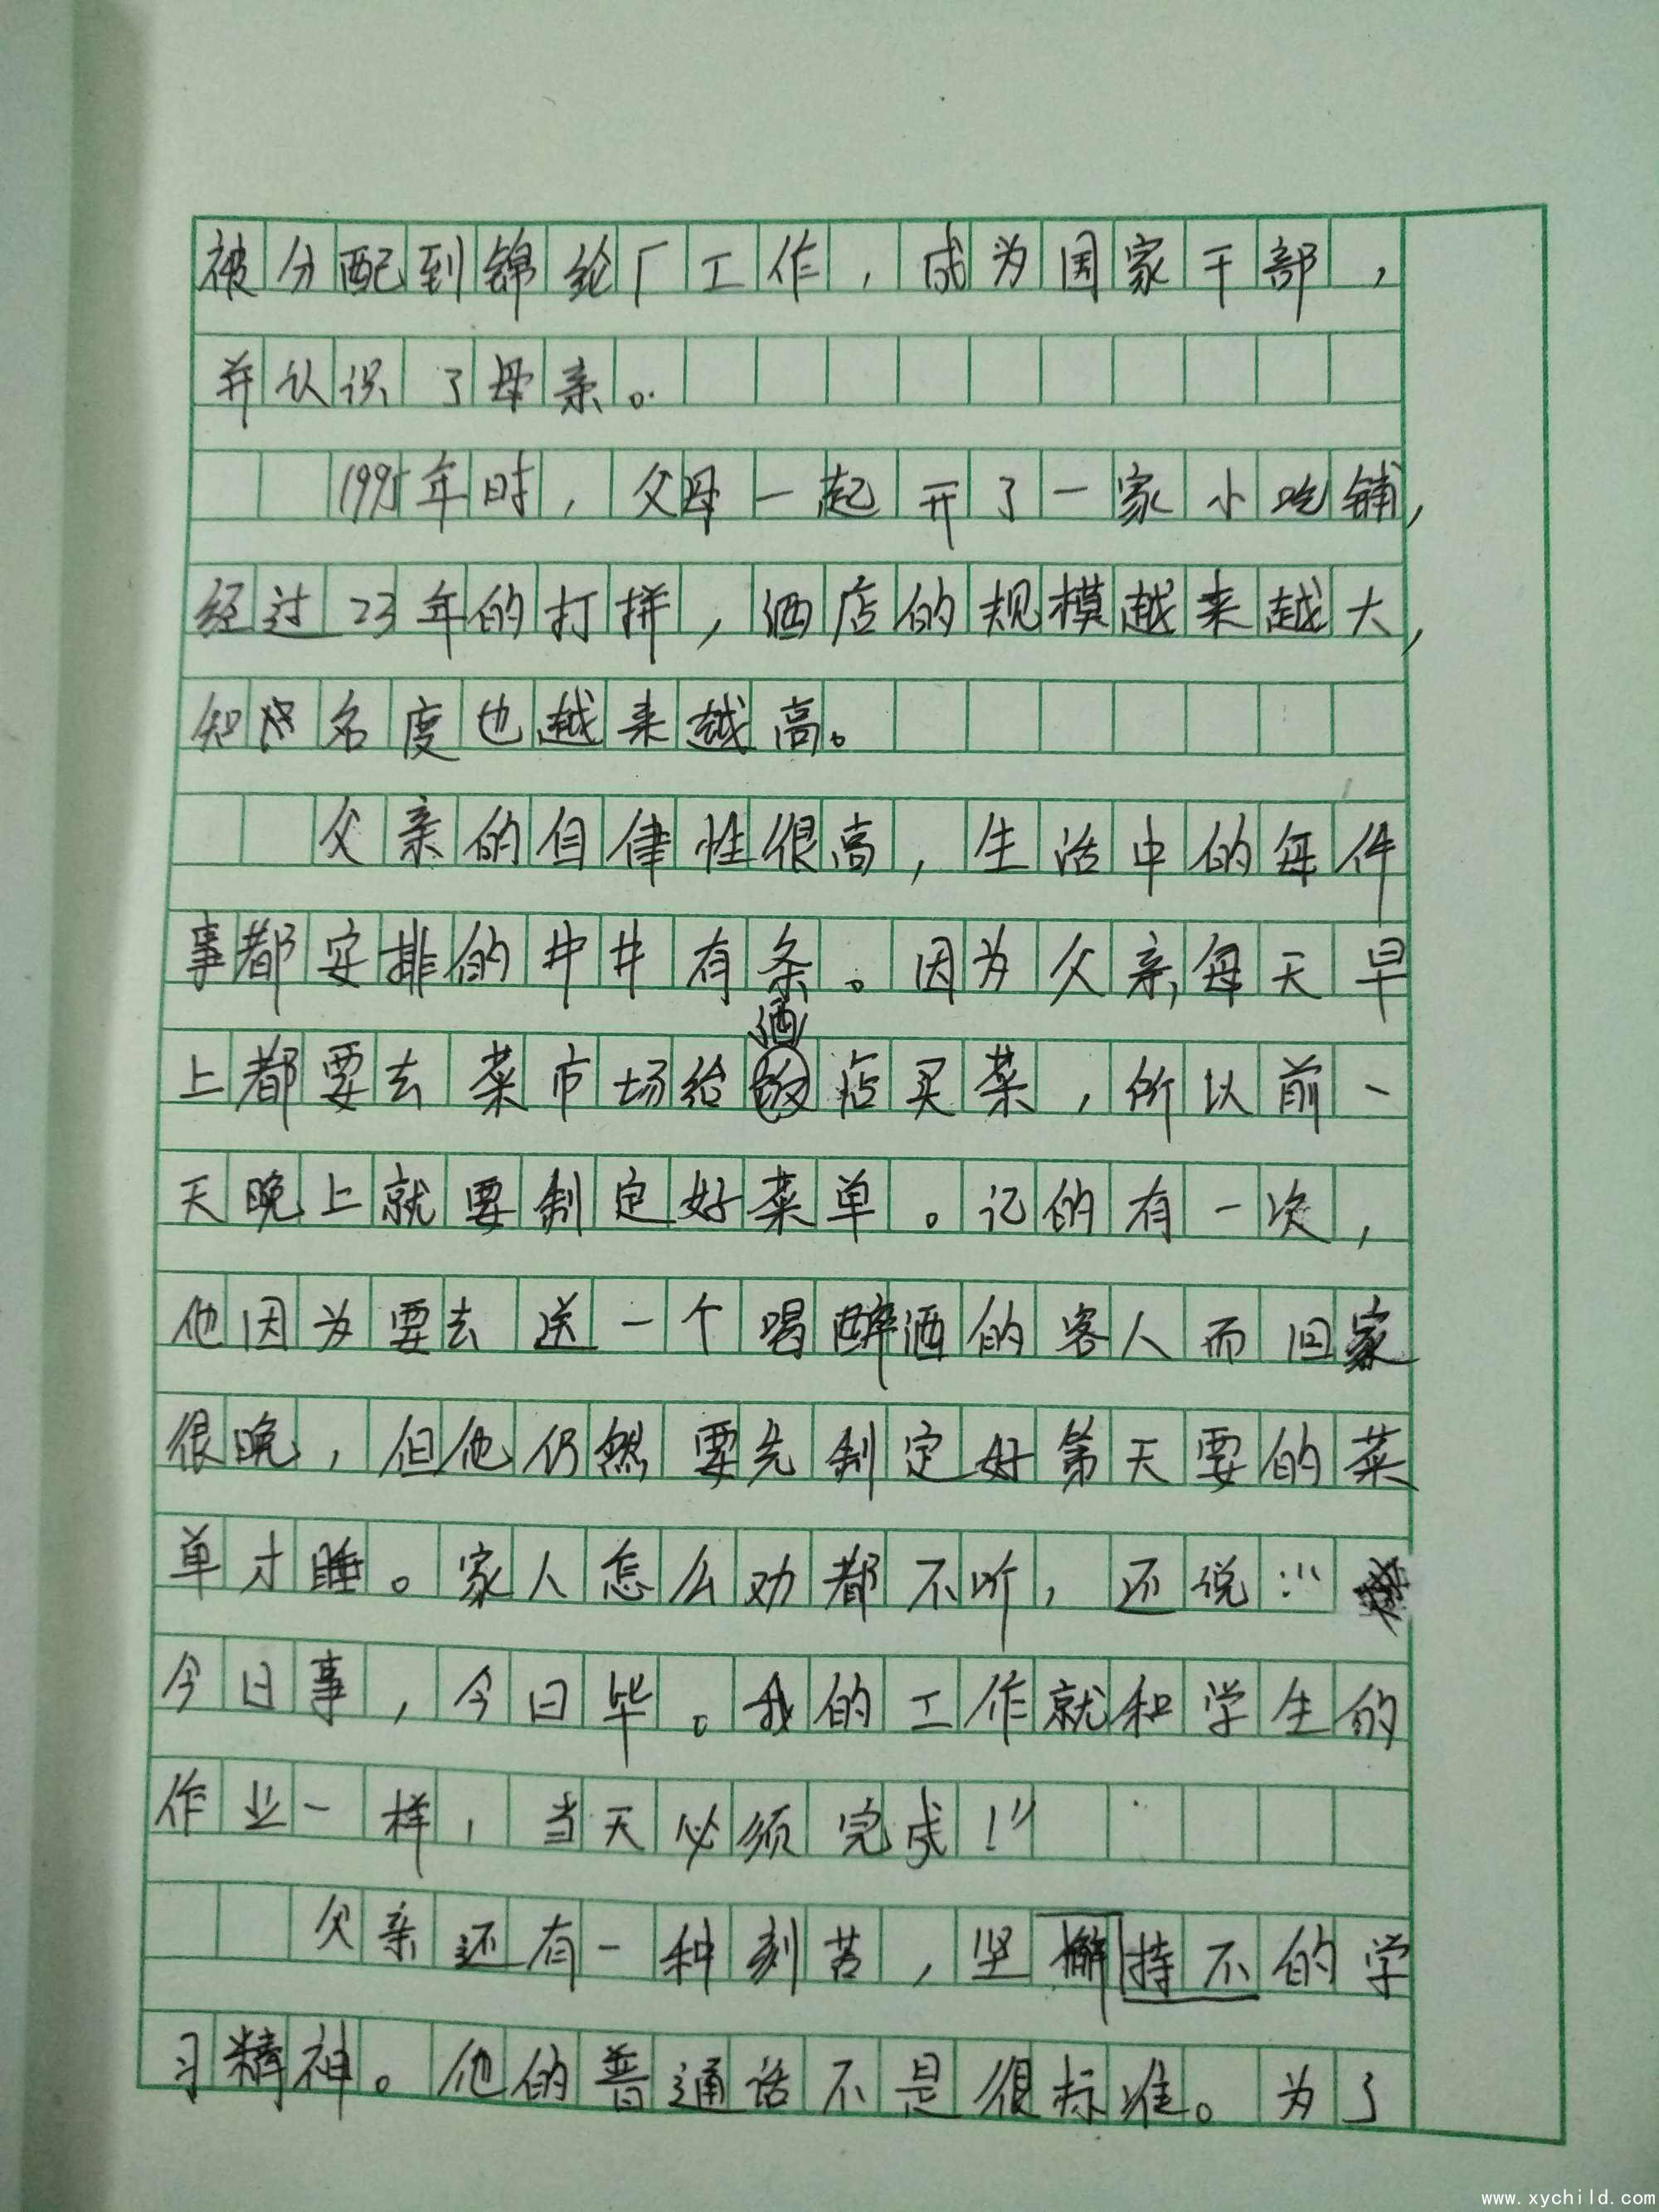 被分配到锦纶厂工作，成为国家干部，
并认识了母亲。
1995年时，父母一起开了一家小吃铺，
经过23年的打拼，酒店的规模越来越大，
知名度也越来越高。
父亲的自律性很高，生活中的每件
事都安排的井井有条。因为父亲每天早
酒
上都要去菜市场给饭店买菜，所以前一
天晚上就要制定好菜单。记的有一次，
他因为要去送一个喝醉酒的客人而回家
很晚，但他仍然要先制定好第天要的菜
单才睡。家人怎么劝都不听，还说：“
今日事，今日毕。我的工作就和学生的
作业一样，当天必须完成！”
父亲还有一种刻苦，坚懈持不的学
习精神。他的普通话不是很标准。为了
www.xychild.com